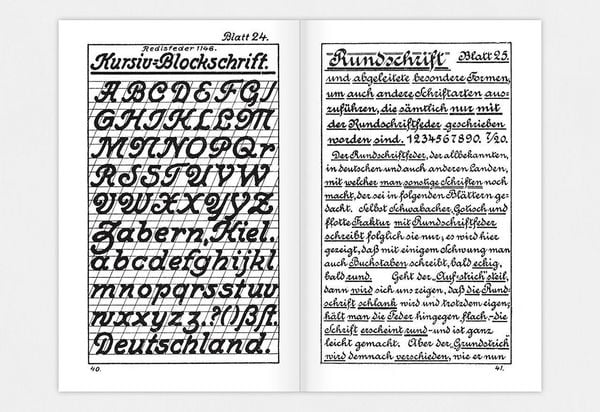 Blatt 24.
Redisfeder 1146.
Kursiv-Blockschrift.
ABCDEFGJ
GHIKLLM
MNNOPQr
RSSTUVW
UVWXXYYZ
Zabern, Kiel.
abcdefghijkl
mnopqrsstuv
wxxyyz.?()ßſt.
Deutschland.
40.
Rundschrift Blatt 25.
und abgeleitete besondere Formen,
um auch andere Schriftarten aus-
zuführen, die sämtlich nur mit
der Rundschriftfeder geschrieben
worden sind. 1234567890. 7/20.
Der Rundschriftfeder, der allbekannten,
in deutschen und auch anderen Landen,
mit welcher man sonstige Schriften noch
macht, der sei in folgenden Blättern ge-
dacht. Selbst Schwabacher, Gotisch und
flotte Fraktur mit Rundschriftfeder
schreibt folglich sie nur, es wird hier
gezeigt, daß mit einigem Schwung man
auch Buchstaben schreibt, bald eckig,
bald rund. Geht der „Auf-strich" steil,
dann wird sich uns zeigen, daß die Rund-
schrift schlank wird und trotzdem eigen;
hält man die Feder hingegen flach,-die
Schrift erscheint rund-und ist ganz
leicht gemacht. Aber der Grundstrich
wird demnach verschieden, wie er nun
41.